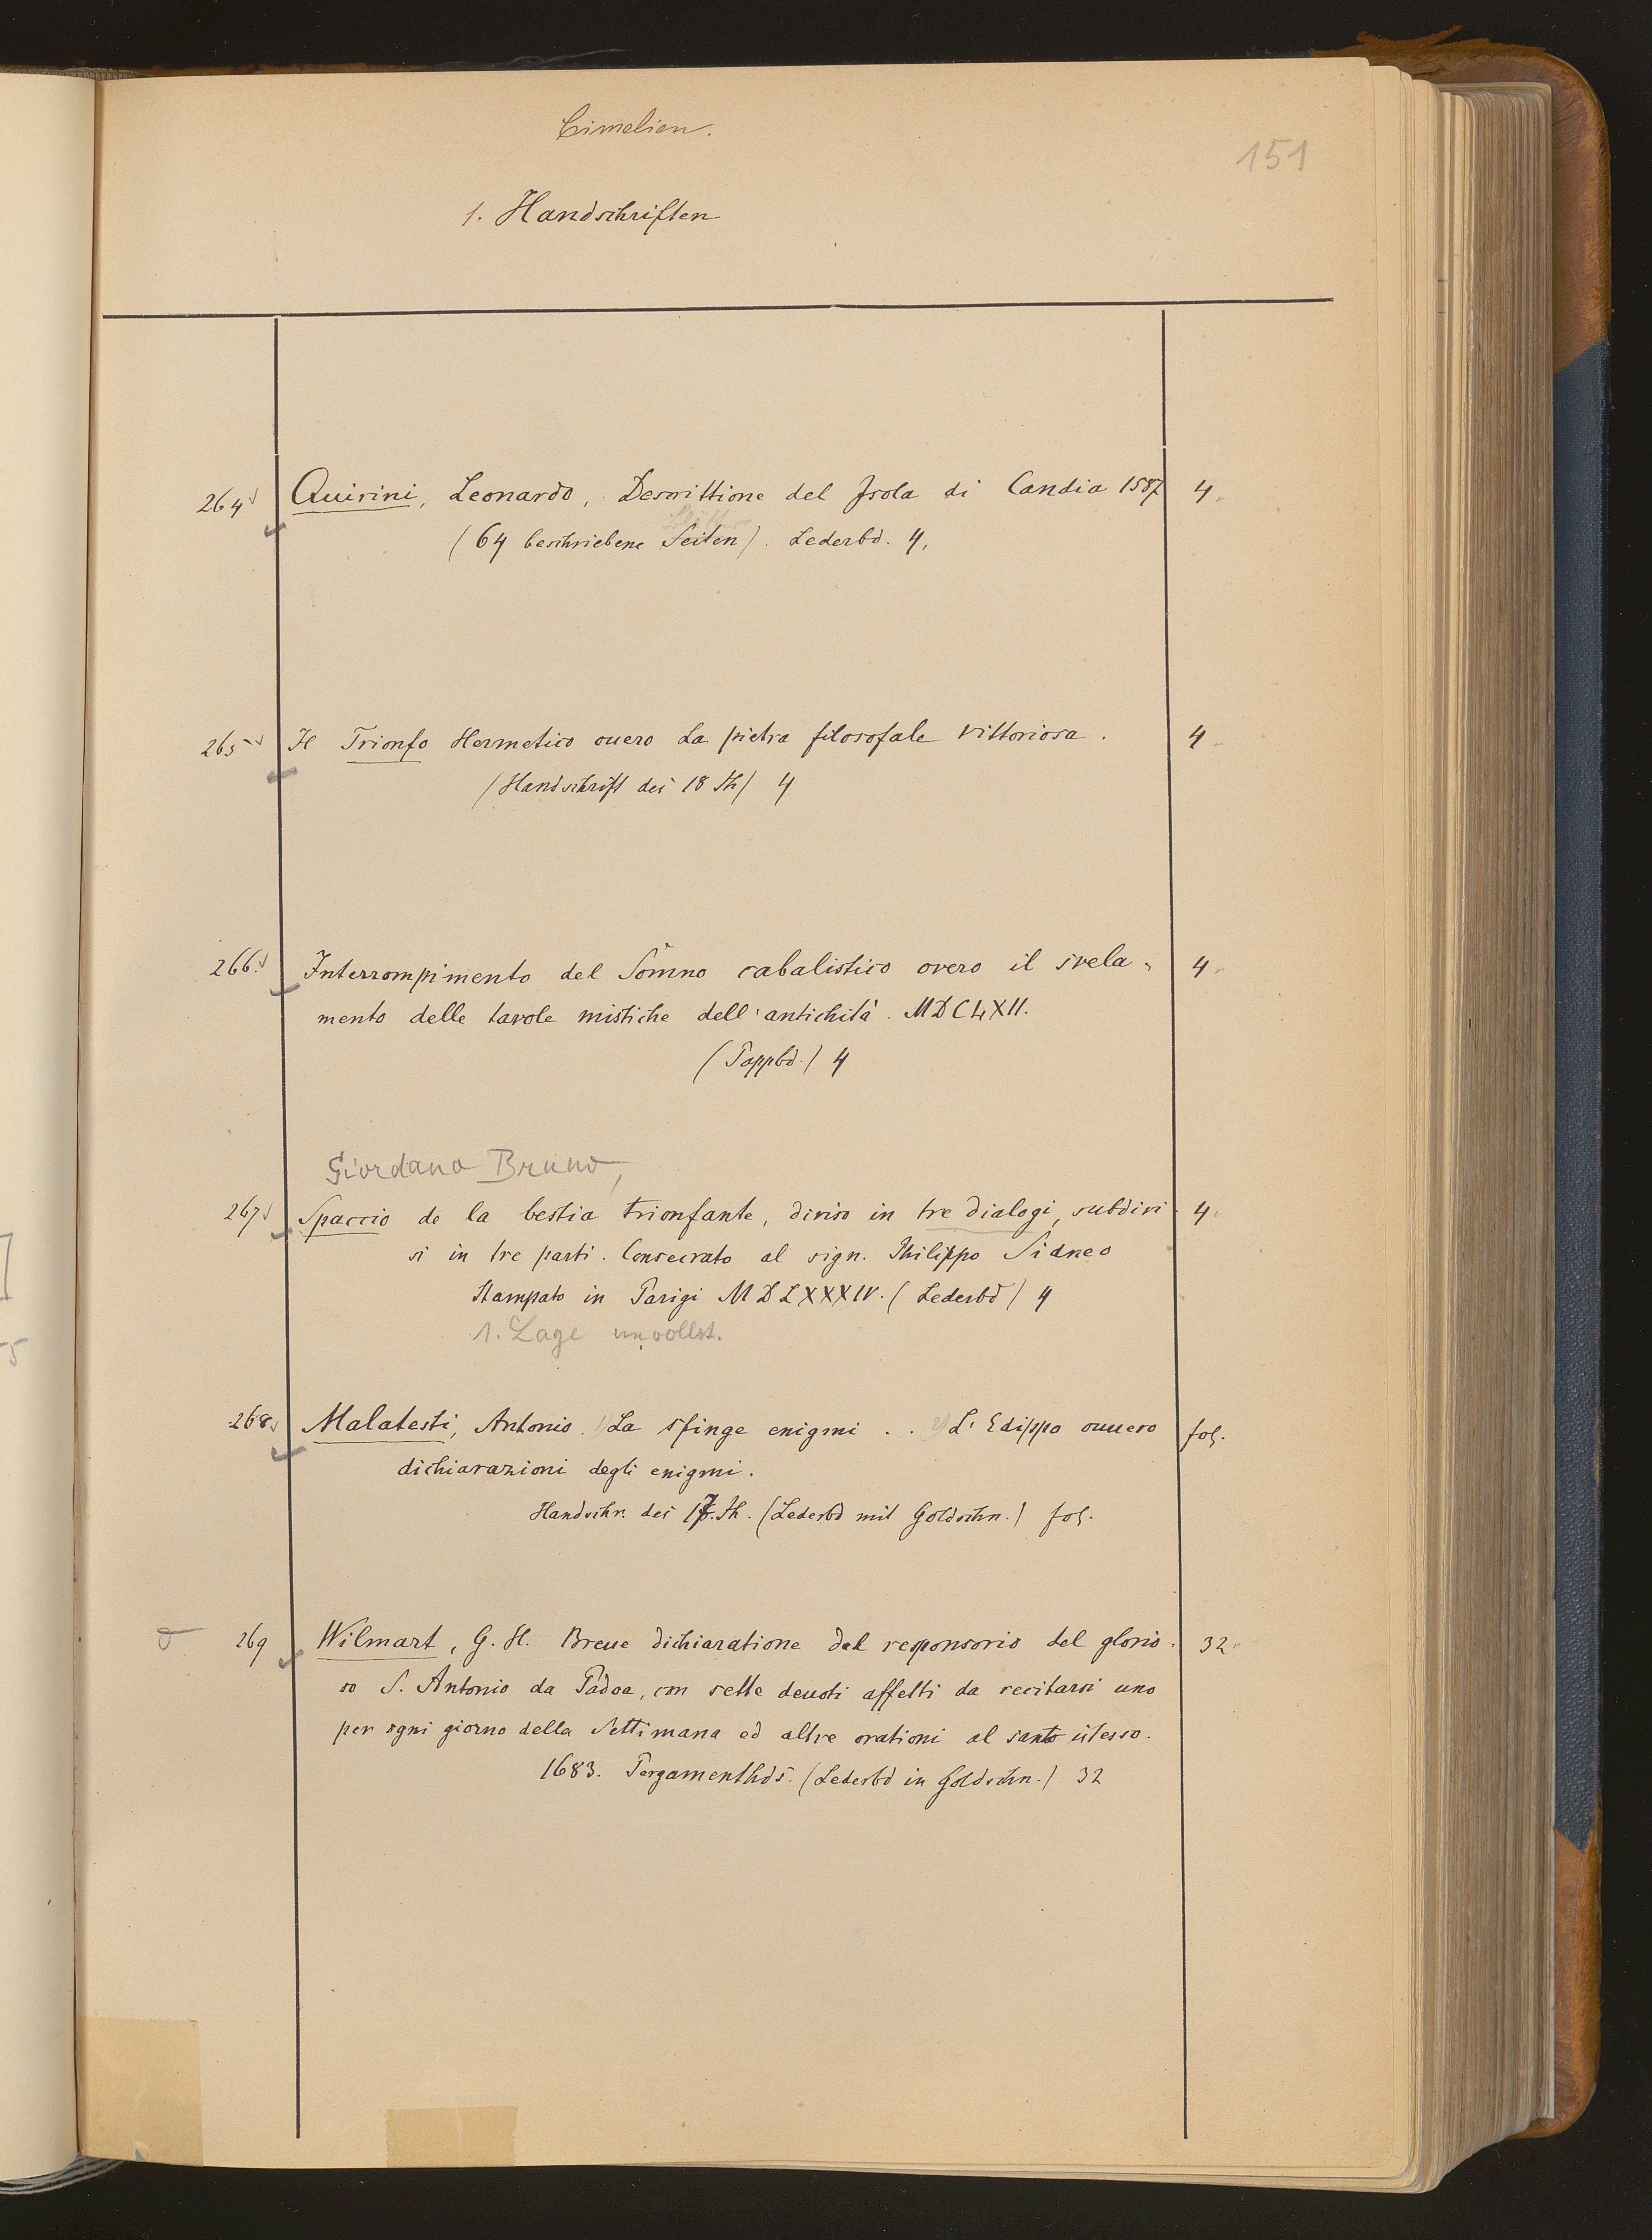 Cimelien.
151
1. Handschriften
264 Quirini, Leonardo, Descrittione del Isola di Candia 1587 4.
Blätter
(64 beschriebene Seiten). Lederbd. 4.
265 Il Trionfo Hermetico ouero La pietra filosofale vittoriosa. 4
(Handschrift des 18 Jh) 4
266. Interrompimento del Som̃no cabalistico overo il svela- 4
mento delle tavole mistiche dell'antichità. MDCLXII.
(Pappbd.) 4
Giordano Bruno,
267 Spaccio de la bestia trionfante, diviso in tre dialogi, subdivi- 4
si in tre parti. Consecrato al sign. Philippo Sidneo
Stampato in Parigi MDLXXXIV. (Lederbd) 4
1. Lage unvollst.
268 Malatesti, Antonio. 1) La sfinge enigmi . . 2) L'Edippo ouuero fol.
dichiarazioni degli enigmi.
Handschr. des 17. Jh. (Lederbd mit Goldschn.) fol.
269 Wilmart, G. H. Breue dichiaratione del responsorio del glorio- 32
so S. Antonio da Padoa, con sette deuoti affetti da recitarsi uno
per ogni giorno della Settimana ed altre orationi al santo istesso.
1683. Pergamenthds. (Lederbd in Goldschn.) 32